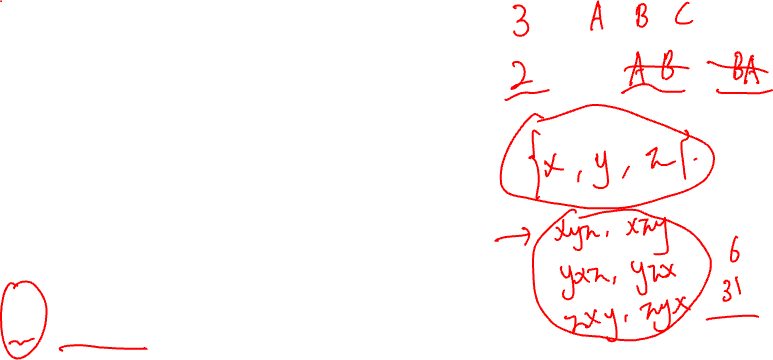 3 A B C
2 AB BA
{x, y, z}.
→ xyz, xzy
yxz, yzx
zxy, zyx
6
3!